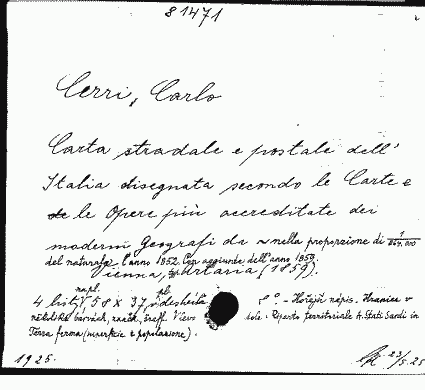 81471
Cerri, Carlo
Carta stradale e postale dell'
Italia disegnata secondo le Carte e
le Opere più accreditate dei
moderni Geografi da ~ nella proporzione di 1/864.000
del naturale l'anno 1852. Con aggiunte dell'anno 1859.
Vienna, Artaria (1859).
napl.
4 listy 58 x 37,
několika barvách, Vlevo
Terra ferma (superficie e popolazione).
8°. - Hořejší nápis. Hranice v
dole: Riparto territoriale d. Stati Sardi in
1925
23/5.25